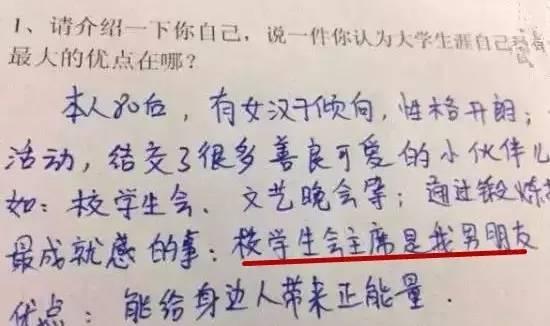 1、请介绍一下你自己，说一件你认为大学生涯自己
最大的优点在哪？
本人80后，有女汉子倾向，性格开朗；
活动，结交了很多善良可爱的小伙伴儿
如：校学生会、文艺晚会等；通过锻炼
最成就感的事：校学生会主席是我男朋友
优点：能给身边人带来正能量．